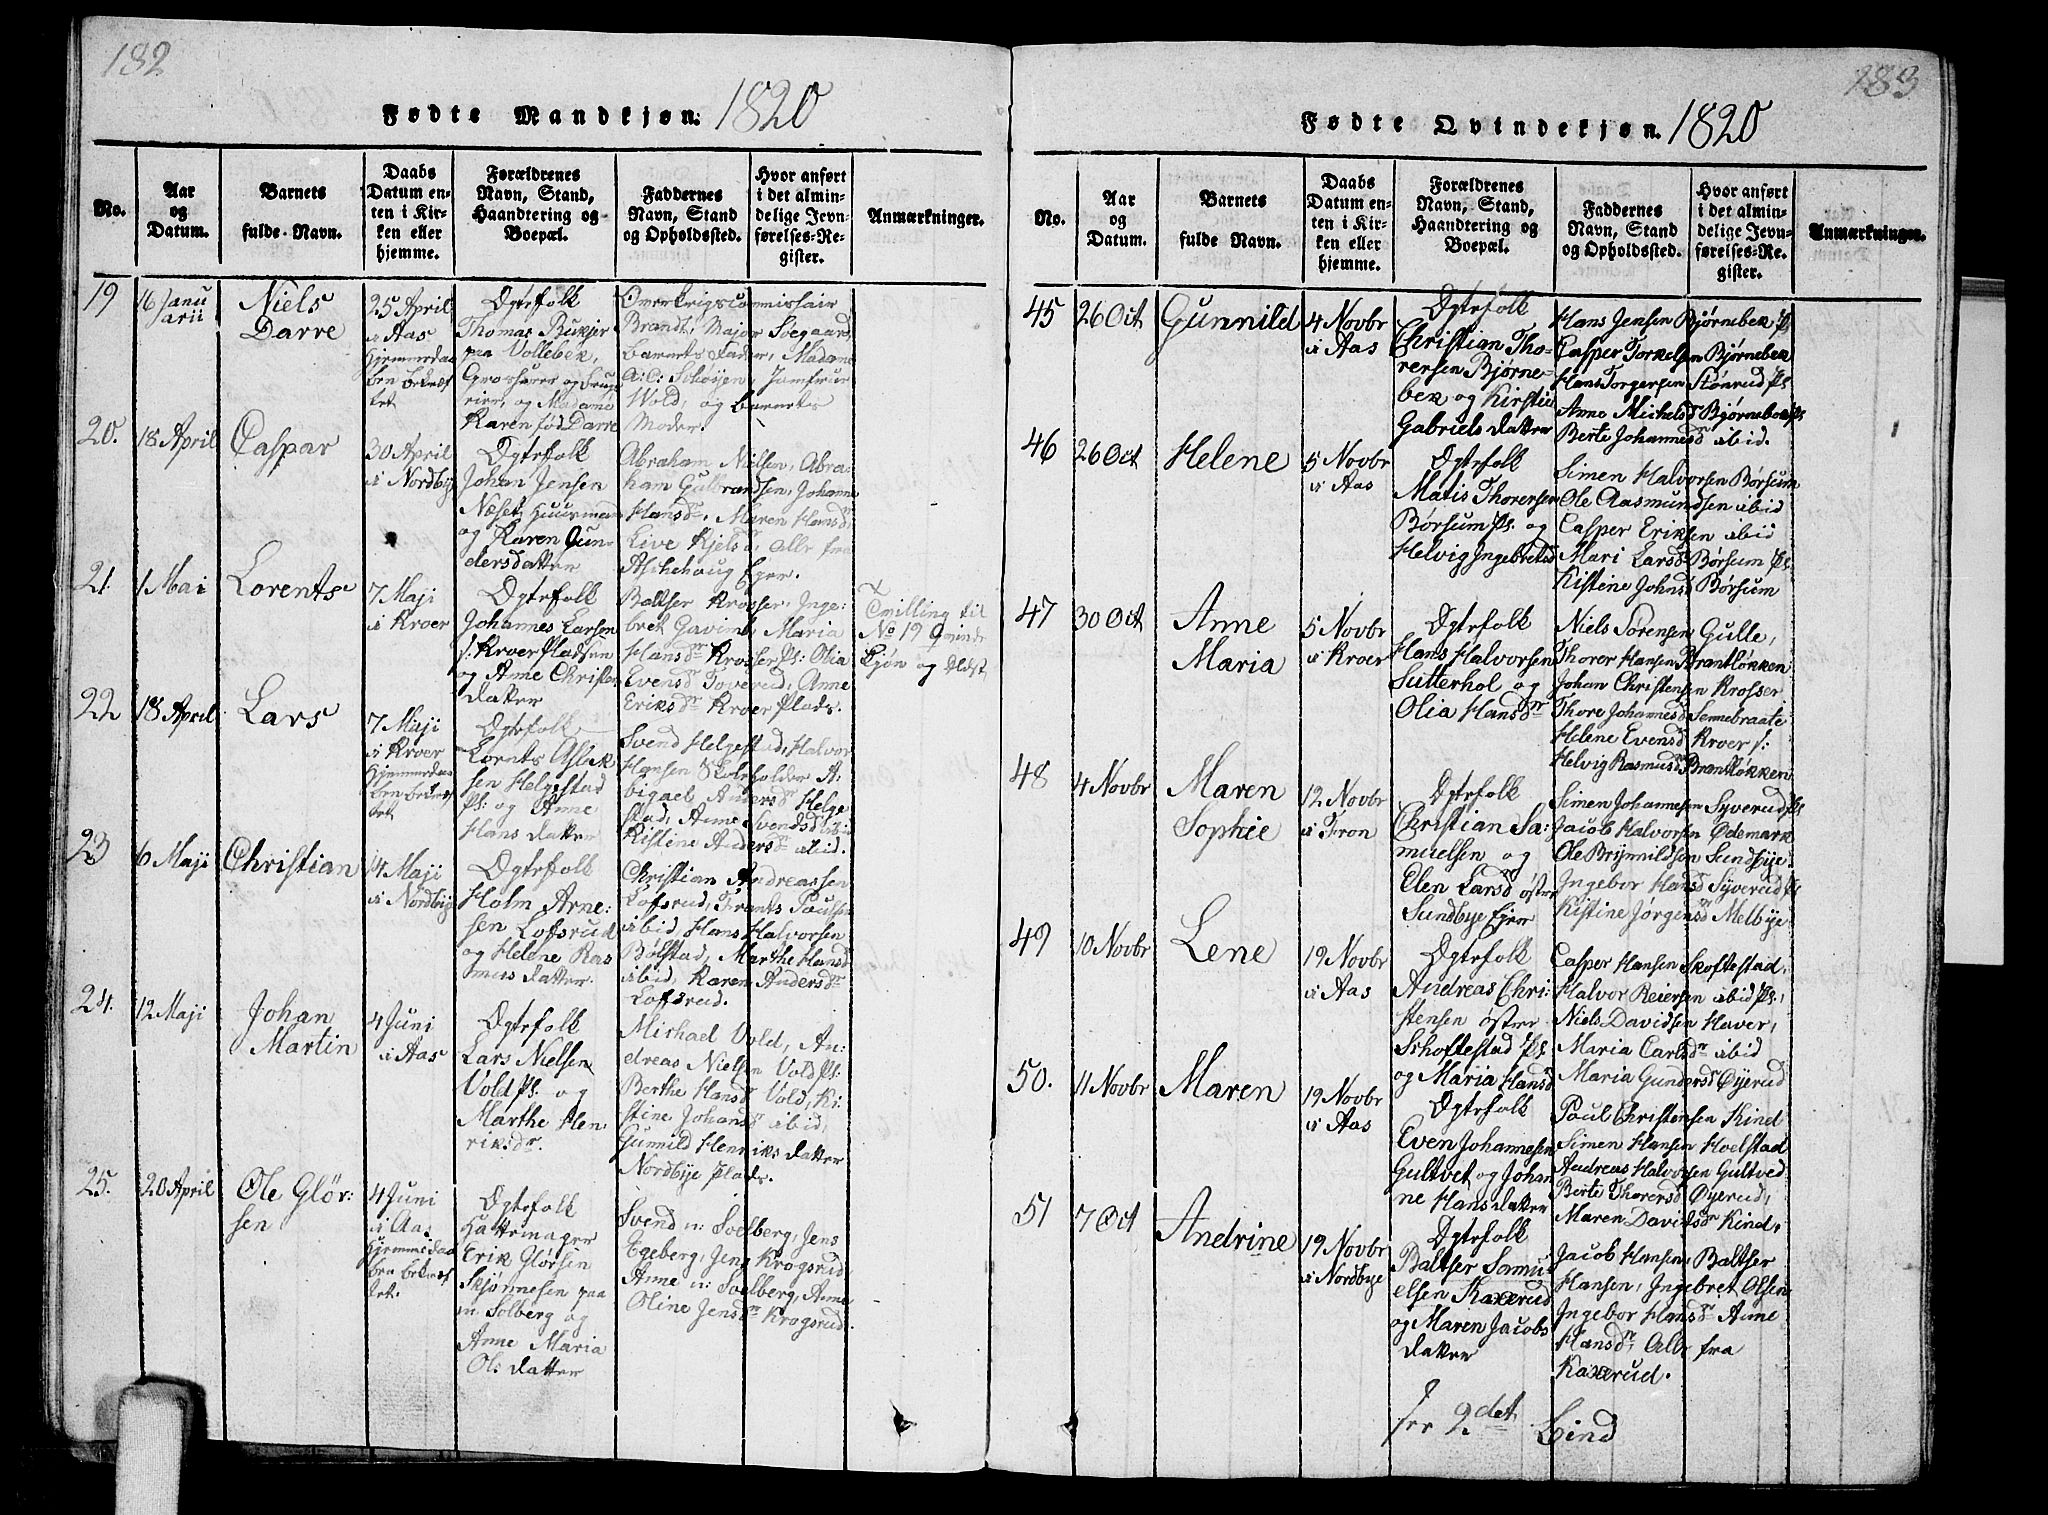 182
Fødte Mandkjøn: 1820
No.
Aar
og
Datum.
Barnets
fulde Navn.
Daabs
Datum en-
ten i Kir-
ken eller
hjemme.
Forældrenes
Navn, Stand,
Haandtering og
Boepæl.
Faddernes
Navn, Stand
og Opholdssted.
Hvor anført
i det almin-
delige Jevn-
førelses-Re-
gister.
Anmærkninger.
19
16 Janu
arii
Niels
Darre
25 April
i Aas
Hjemmedaa
ben bekræf
tet
Ægtefolk
Thomas
paa Vollebek,
og Madame
Karen fød Darre
Brandt, Major Soegaard
barnets Fader, Madame
Jomfrue
Wold, og barnets
Moder.
20.
18 April
Caspar
30 April
i Nordbye
Ægtefolk
Johan Jensen
Næset Huusmand
og Karen Gun-
dersdatter
Abraham Nielsen, Abra-
ham Gulbrandsen, Johanne
Hansdr, Maren Hansdr
Live Kjelsd, alle fra
Aschehoug Ejer.
21.
1 Mai
Lorents
7 Maji
i Kroer
Ægtefolk
Johannes Larsen
s: Kroer Pladsen
og Anne Christens
datter
Baltser Krosser, Inge:
bret Maria
Hansdr Krosser Ps: Olia
Evensd Toverud, Anne
Eriksdr Kroer Plads.
x
Tvilling til
No 19 Qvinde
Kjøn og Ældst
22
18 April
Lars
7 Maji
i Kroer
Hjemmedaa
ben bekræf
tet
Ægtefolk
Lornts Aslak
sen Helgestad
Ps: og Anne
Hans datter
Svend Helgestad, Halvor
Hansen Skoleholder A:
bigael Andersdr Helge
stad, Anne Svendsd ibid
Kistine Andersd ibid.
23
6 Maji
Christian
4 Maji
i Nordbye
Ægtefolk
Holm Arne:
sen Lofsrud
og Helene Ras
mus datter.
Christian Andreassen
Lofsrud, Frants Poulsen
ibid, Hans Halvorsen
Bølstad, Marthe Hansd
ibid, Karen Andersdr
Lofsrud.
24.
12 Maji
Johan
Martin
4 Juni
i Aas
Ægtefolk
Lars Nielsen
Vold Ps. og
Marthe Hen
riksdr.
Michael Vold, An:
dreas Nielsen Vold Ps:
Berthe Hansd Vold, Ki:
stine Johansd ibid,
Gunnild Henriks datter
Nordbye Plads.
25.
20 April
Ole Glør:
sen
4 Juni
i Aas
Hjemmedaa
ben bekræf
tet.
Ægtefolk
Hattemager
Erik Glørsen
Skjønnesen paa
n: Solberg og
Anne Maria
Ols datter
Svend n: Soelberg, Jens
Egeberg, Jens Krogsrud
Anne n: Soelberg, Anne
Oline Jensdr Krogsrud.
183
Fødte Qvindekjøn. 1820
No.
Aar
og
Datum.
Barnets
fulde Navn.
Daabs
Datum en-
ten i Kir-
ken eller
hjemme.
Forældrenes
Navn, Stand,
Haandtering og
Boepæl.
Faddernes
Navn, Stand
og Opholdssted.
Hvor anført
i det almin-
delige Jevn-
førelses-Re-
gister.
Anmærkninger.
45
26 Oct
Gunnild
4 Novbr
i Aas
Ægtefolk
Christian Tho-
rersen Bjørne-
bek og Kirstie
Gabriels datter
Hans Jensen Bjørnebek Ps
Casper Torkelsen Bjørnebek
Hans Torgersen Stønrud Ps
Anne Michelsd Bjørnebek Ps
Berte Johannesd ibid.
46
26 Oct
Helene
5 Novbr
i Aas
Ægtefolk
Matis Thorersen
Børsum Ps. og
Helvig Ingebretsd
Simen Halvorsen Børsum
Ole Aasmundsen ibid
Casper Eriksen ibid
Mari Larsd Børsum Ps.
Kistine Johnsd Børsum
47
30 Oct
Anne
Maria
5 Novbr
i Kroer
Ægtefolk
Hans Halvorsen
Sutterhol og
Olia Hansdr
Niels Sørensen Gulle,
Thorer Hansen Brantløkken
Johan Christensen Krosser
Thore Johannesd Sennebraate
Helene Evensd Kroer s:
Helvig Rasmusd Brantløkken
48
4 Novbr
Maren
Sophie
12 Novbr
i Fron
Ægtefolk
Christian Sa:
muelsen og
Elen Larsd østre
Sundbye Ejer
Simen Johannesen Syverud Ps
Jacob Halvorsen Ødemark
Ole Brynnildsen Sundbye
Ingebor Hansd Syverud Ps
Kistine Jørgensd Melbye
49
10 Novbr
Lene
19 Novbr
i Aas
Ægtefolk
Andreas Chri:
stensen østre
Schoftestad Ps
og Maria Hansd
Casper Hansen Skoftestad,
Halvor Reiersen ibid Ps:,
Niels Davidsen Haver,
Maria Carlsdr ibid
Maria Gundersd Øyerud
50.
11 Novbr
Maren
19 Novbr
i Aas
Ægtefolk
Even Johannesen
Gultvet og Johan
ne Hans datter
Poul Christensen Kind
Simen Hansen Hoelstad
Andreas Halvorsen Gultved
Berte Thorersd Øyerud,
Maren Davidsdr Kind,
51
7 Oct
Andrine
19 Novbr
i Nordbye
Ægtefolk
Baltser Samu
elsen Kaxerud
og Maren Jacobs
datter
Jacob Hansen, Baltser
Hansen, Ingebret Olsen
Ingebor Hansdr Anne
Hansdr, Alle fra
Kaxerud.
see 2det Bind